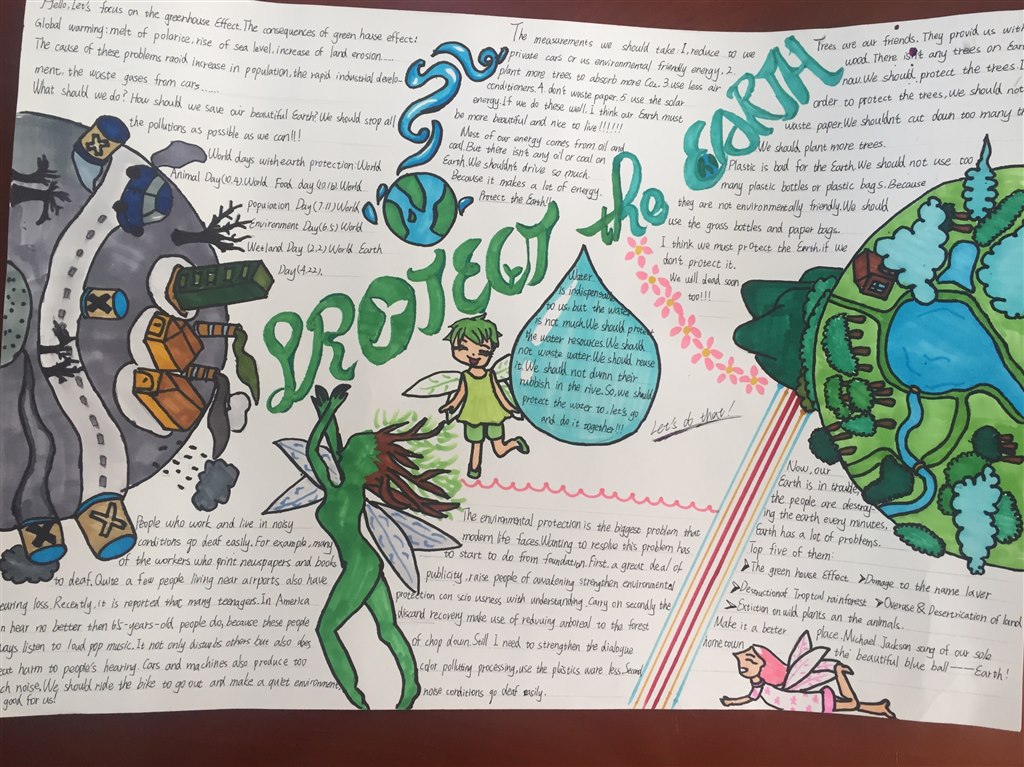 Hello, Let's focus on the greenhouse Effect. The consequences of green house effect:
Global warming: melt of polarice, rise of sea level, increase of land erosion.....
The cause of these problems rapid increase in population, the rapid industrial develo-
ment, the waste gases from cars......
What should we do? How should we save our beautiful Earth? We should stop all
the pollutions as possible as we can!!!
World days with earth protection: World
Animal Day (10.4). World Food day (10.16). World
Population Day (7.11) World
Environment Day (6.5) World
Wetland Day (2.2) World Earth
Day (4.22).
The measurements we should take: 1, reduce to we
private cars or us environmental friendly energy. 2.
plant more trees to absorb more Co2. 3. use less air
conditioners. 4. don't waste paper. 5. use the solar
energy. If we do these well. I think our Earth must
be more beautiful and nice to live!!!!!!
Most of our energy comes from oil and
coal. But there isn't any oil or coal on
Earth. We shouldn't drive so much.
Because it makes a lot of energy.
Protect the Earth!!
PROTECT the EARTH
Trees are our friends. They provid us with
wood. There isn't any trees on Earth
now. We should protect the trees. I
order to protect the trees, We should not
waste paper. We shouldn't cut down too many
We should plant more trees.
Plastic is bad for the Earth. We should not use too
many plastic bottles or plastic bags. Because
they are not environmentally friendly. We should
use the grass bottles and paper bags.
I think we must protect the Earth, if we
don't protect it.
We will dead soon
too!!!
Water
is indispensable
to us, but the water
is not much. We should protect
the water resources. We should
not waste water. We should reuse
it. We should not dumn their
rubbish in the rive. So, we should
protect the water to, let's go
and do it together!!!
Let's do that!
People who work and live in noisy
conditions go deaf easily. For example, many
of the workers who print newspapers and books
to deaf. Quite a few people living near airports also have
earing loss. Recently, it is reported that many teenagers. In America
n hear no better then 65-years-old, people do, because these people
ays listen to loud pop music. It not only disturbs others but also does
eat harm to people's hearing. Cars and machines also produce too
ch noise. We should ride the bike to go out and make a quiet environment,
good for us!
The environmental protection is the biggest problem that
modern life faces. Wanting to resolve this problem has
to start to do from foundation. First, a great deal of
publicity, raise people of awakening strengthen environmental
protection con scio usness with understanding. Carry on secondly the
discard recovery make use of reducing arboreal to the forest
of chop down. Still I need to strengthen the dialogue
polluting processing, use the plastics ware less. Second
noise conditions go deaf easily.
Now, our
Earth is in trouble,
the people are destroy-
ing the earth every minutes,
Earth has a lot of problems.
Top five of them:
➤The green house Effect ➤Damage to the name layer
➤Desructional Troptal rainforest ➤Overuse & Desertrication of land
➤Extiution on wild plants an the animals.
Make it a better place. Michael Jackson song of our sole
home town the beautiful blue ball——Earth!